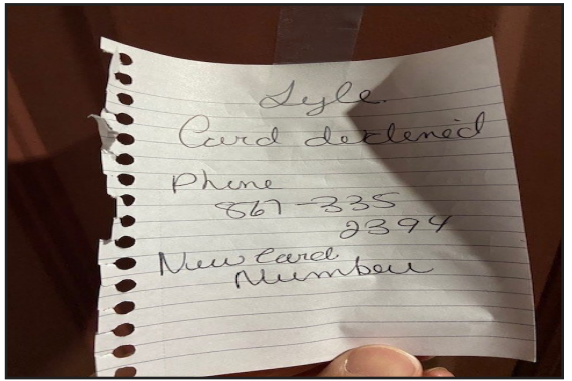 Lyle
Card declened
Phone
867-335
2394
New Card
Number